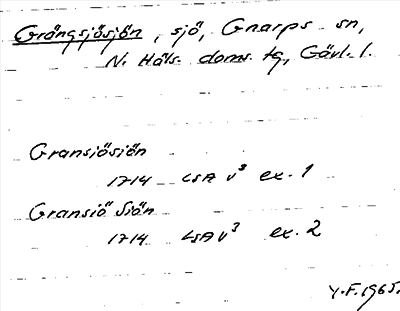 Grängsjösjön, sjö, Gnarps sn,
N. Häls. doms. tg, Gävl. l.
Gransiösiön
1714 LSA V³ ex. 1
Gransiö Siön
1714 LSA V³ ex. 2
Y.F. 1965.